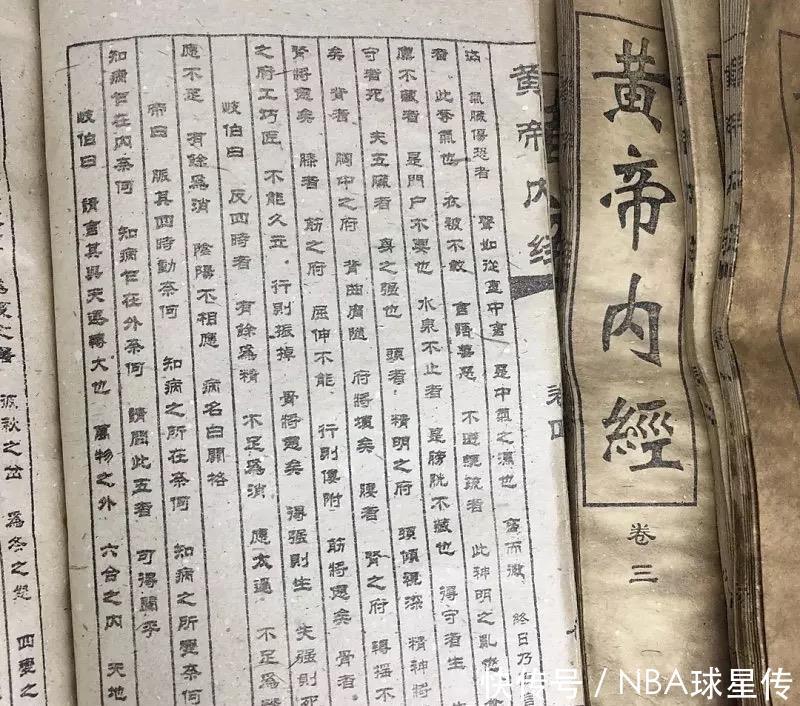 黄帝内经 卷四
滿 氣勝傷恐者 聲如從室中言 是中氣之濕也 言而微 終日乃
者 此奪氣也 衣被不斂 言語善惡 不避親疏者 此神明之亂也
廩不藏者 是門户不要也 水泉不止者 是膀胱不藏也 得守者生
守者死 夫五臟者 身之强也 頭者 精明之府 頭傾視深 精神將
矣 背者 胸中之府 背曲肩隨 府將壞矣 腰者 腎之府 轉摇不
腎將憊矣 膝者 筋之府 屈伸不能 行則僂附 筋將憊矣 骨者
之府工巧匠 不能久立 行則振掉 骨將憊矣 得强則生 失强則死
岐伯曰 反四時者 有餘爲精 不足爲消 應太過 不足爲
應不足 有餘爲消 陰陽不相應 病名曰關格
帝曰 脈其四時動奈何 知病之所在奈何 知病之所變奈何
知病乍在内奈何 知病乍在外奈何 請問此五者 可得聞乎
岐伯曰 請言其與天運轉大也 萬物之外 六合之内 天地
爲夏之暑 彼秋之忿 爲冬之怒 四變之
黄帝内經 卷三
快传号 / NBA球星传